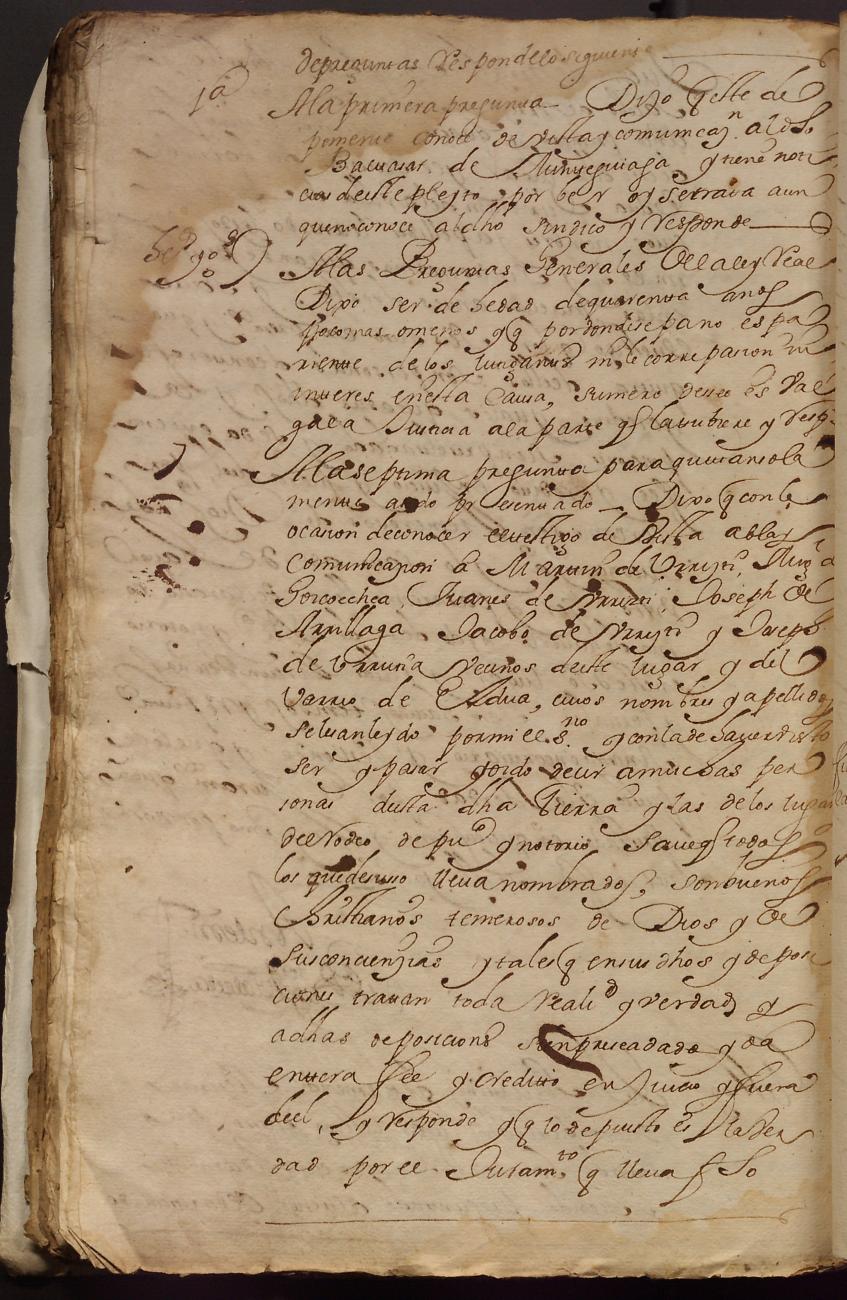 depreguntas Responde lo siguiente
1ª
Ala primera pregunta Dijo q este de
ponente conoce de vista y comunicaⁿ. al dho
Baltasar de y tiene noti
cias deste pleyto por ber q se trata aun
que no conoce al dho Sindico y Responde
hedad 40
Alas Preguntas Generales de la ley Real
Dixo ser de hedad de quarenta años
poco mas omenos y q por donde se pa no es pa
riente de los ni le corre pasion ni
interes enesta Causa, su mero deseo es Val
ga la Justicia ala parte q la tubiere y resp.
7
Ala septima pregunta para que tansola
mente a sido presentado Dixo q con la
ocasion de conocer el testigo de Vista abla y
Comunicazion a Martin de Urruti,
Goicoechea, Juanes de Urruti, Joseph de
Arrillaga, Jacobo de Urruti y Joseph
de Urrutia vecinos deste lugar y del
Varrio de Eldua, cuios nombres y apellidos
se le an leydo por mi el s.ⁿᵒ y con la de hauer visto
ser y pasar y oido decir a muchas per
sonas desta dha tierra y las de los lugares
del Rodeo de puᶜᵒ y notorio Saue q todos
los que desuso lleva nombrados, son buenos
Christianos temerosos de Dios y de
sus conciencias y tales q en sus dhos y deposi
ciones tratan toda realiᵈ y verdad y q
adhas deposiciones siempre se a dado y da
entera fee y credito en Juicio y fuera
del, y responde y q lo depuesto es la ver
dad por el Juramᵗᵒ q lleva fho